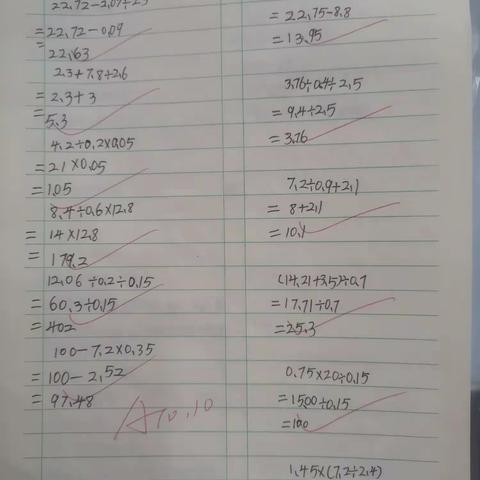 22.72-2.09÷23
=22.72-0.09
=22.63
2.3+7.8÷2.6
=2.3+3
=5.3
4.2÷0.2×0.05
=21×0.05
=1.05
8.4÷0.6×12.8
=14×12.8
=179.2
12.06÷0.2÷0.15
=60.3÷0.15
=402
100-7.2×0.35
=100-2.52
=97.48
=22.75-8.8
=13.95
3.76÷0.4÷2.5
=9.4÷2.5
=3.76
7.2÷0.9+2.1
=8+2.1
=10.1
(14.21+3.5)÷0.7
=17.71÷0.7
=25.3
0.75×20÷0.15
=15.00÷0.15
=100
1.45×(7.2÷2.4)
A 10.10